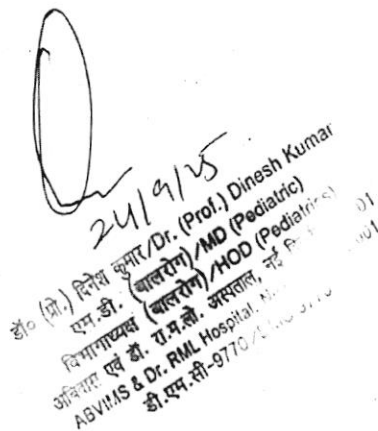 24/9/25
डॉ० (प्रो.) दिनेश कुमार/Dr. (Prof.) Dinesh Kumar
एम.डी. (बालरोग)/MD (Pediatric)
विभागाध्यक्ष (बालरोग)/HOD (Pediatrics)
एवं डॉ. रा.म.लो. अस्पताल, नई 01
ABVIMS & Dr. RML Hospital, 001
डी.एम.सी-9770